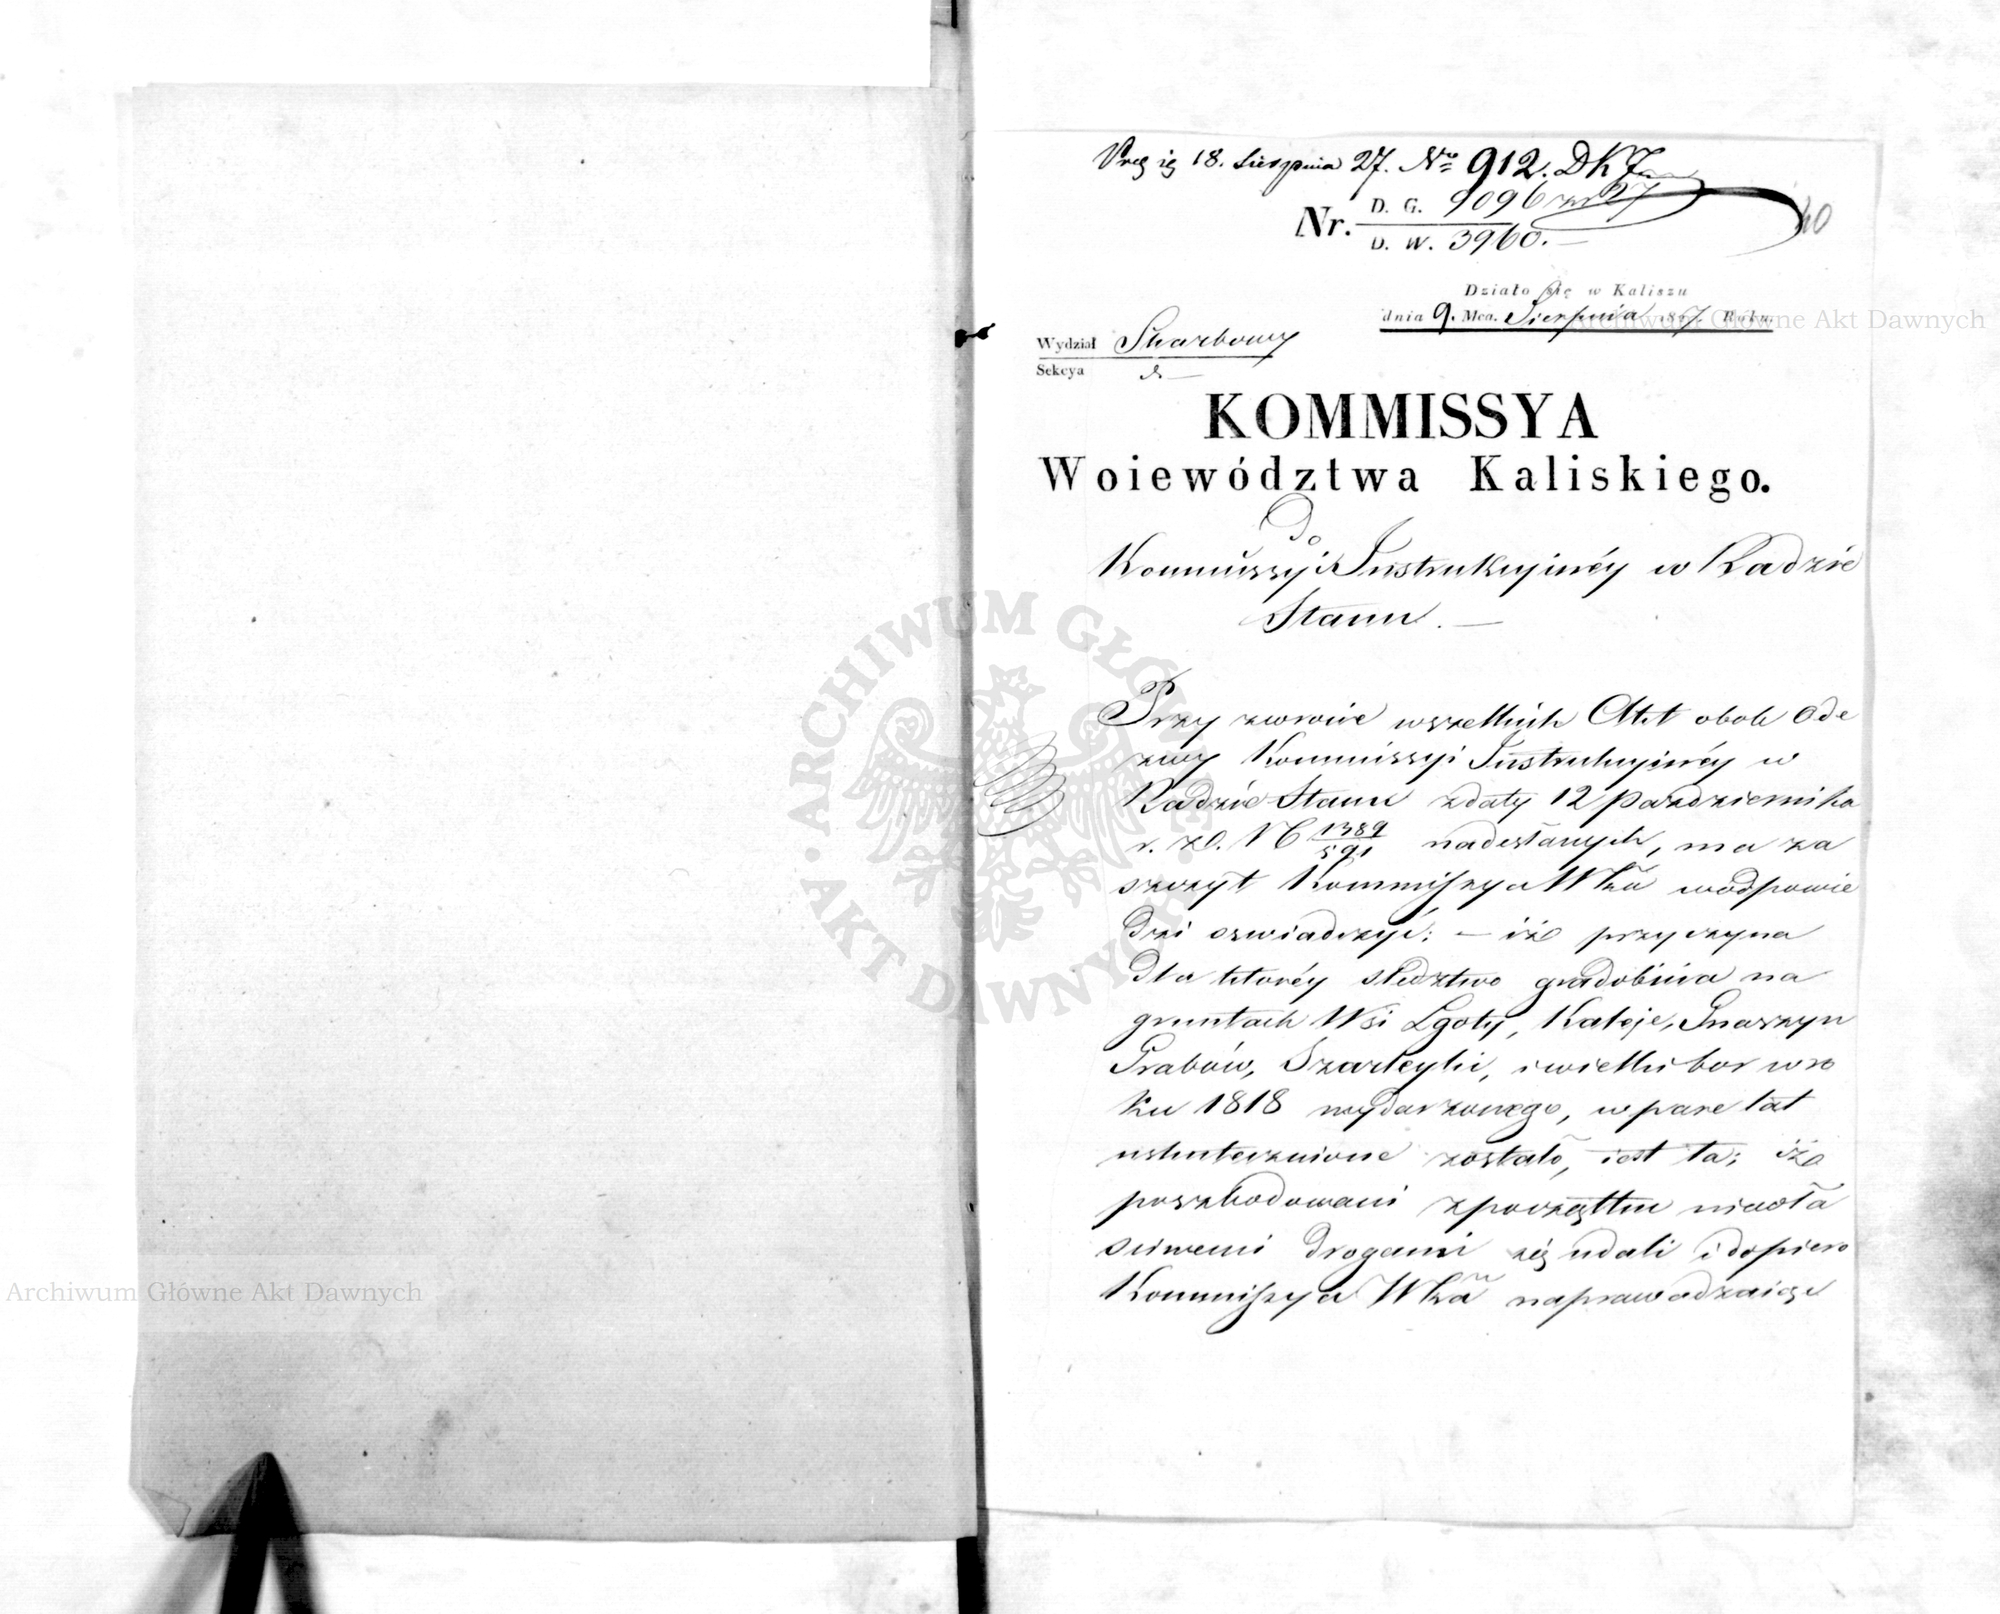 18. Sierpnia 27. Nro 912. DK 7
Nr. D. G. 9096
D. W. 3960.
40
Działo się w Kaliszu
dnia 9. Mca. Sierpnia 1827. Roku.
Wydział Skarbowy
Sekcya
KOMMISSYA
Woiewództwa Kaliskiego.
Do
Kommissyi Instrukcyinéy w Radzie
Stanu. —
Przy zwrocie wszelkich Akt obok Ode
zwy Kommissyi Instrukcyinéy w
Radzie Stanu z daty 12 Pazdziernika
r. z. N 1389/591 nadesłanych, ma za
szczyt Kommissya Wka w odpowie
dzi oswiadczyć: — iż przyczyna
dla któréy sledztwo gradobicia na
gruntach Wsi Lgoty, Kaleje, Gnaszyn
Grabów, Szarleyki, i wielki bor w ro
ku 1818 wydarzonego, w pare lat
uskutecznione zostało, iest ta; iż
poszkodowani z początku niewła
sciwemi drogami się udali i dopiero
Kommissya Wka naprowadzaiąc
ARCHIWUM GŁÓWNE · AKT DAWNYCH ·
Archiwum Główne Akt Dawnych
Archiwum Główne Akt Dawnych